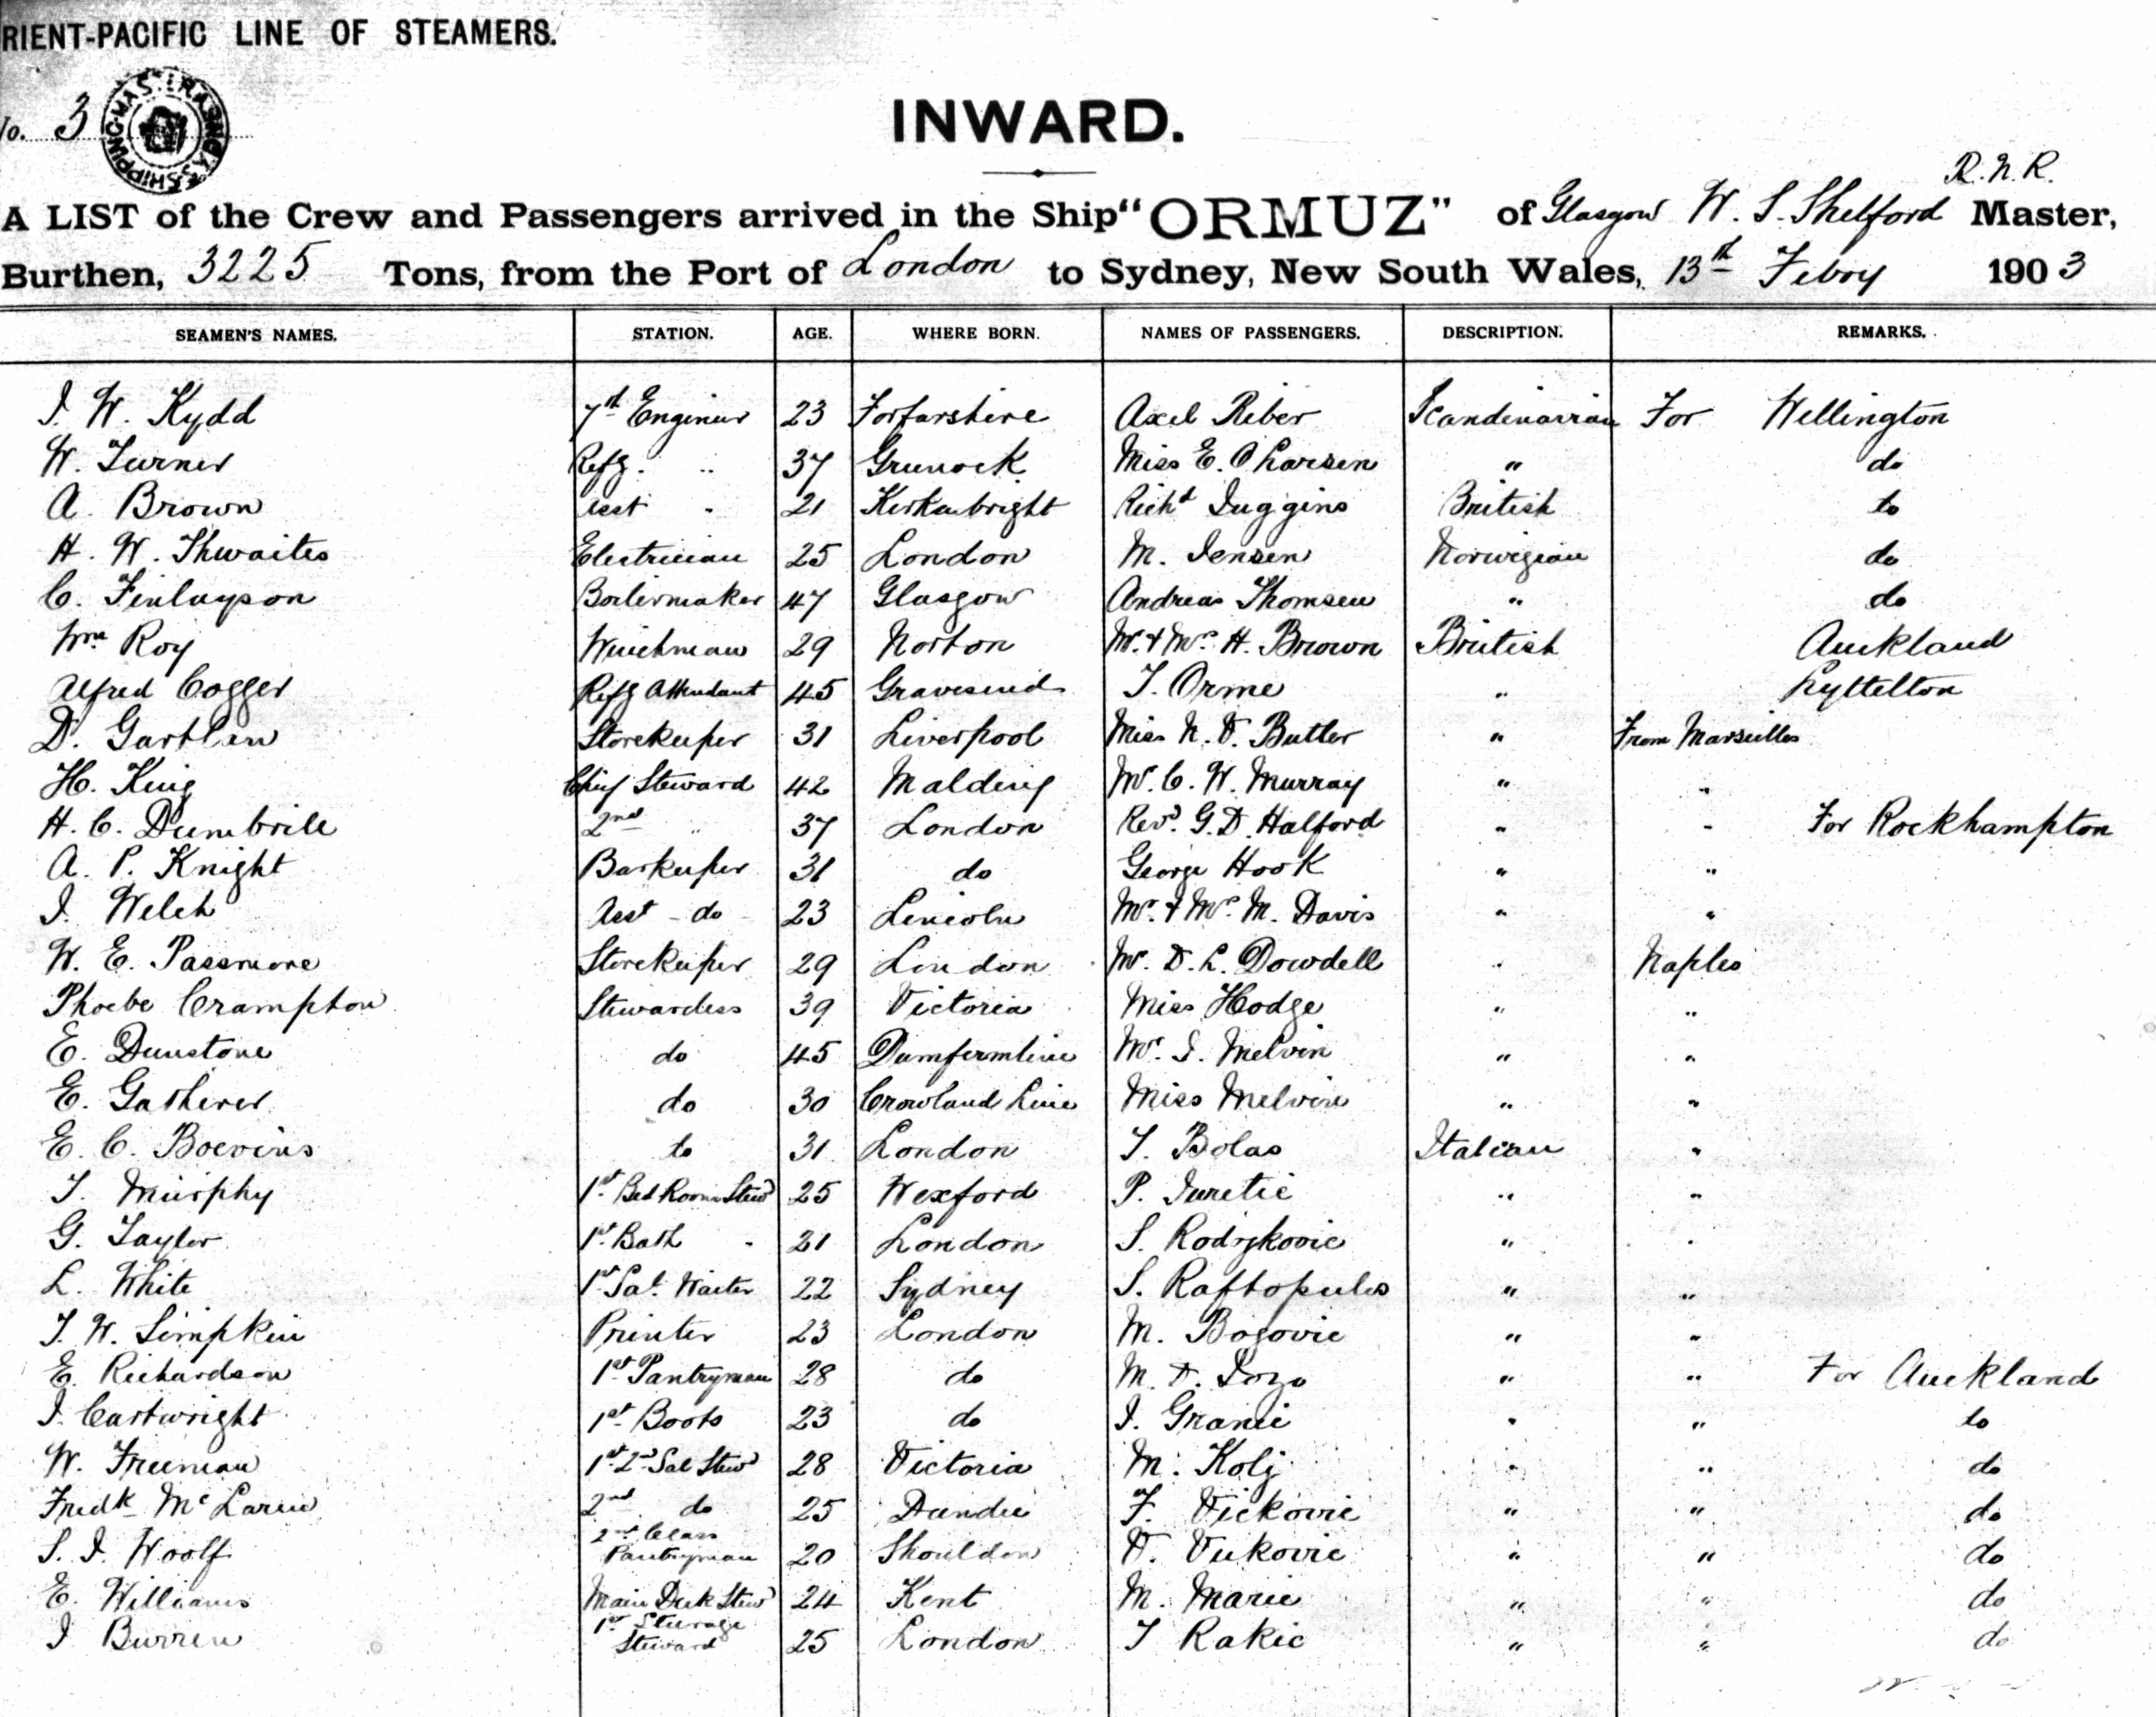 RIENT-PACIFIC LINE OF STEAMERS.
No. 3
SHIPPING MAS
INWARD.
R.N.R.
A LIST of the Crew and Passengers arrived in the Ship "ORMUZ" of Glasgow W. S. Shelford Master,
Burthen, 3225 Tons, from the Port of London to Sydney, New South Wales, 13th Febry 1903
SEAMEN'S NAMES. STATION. AGE. WHERE BORN. NAMES OF PASSENGERS. DESCRIPTION. REMARKS.
J. W. Kydd 7th Engineer 23 Forfarshire Axel Riber Scandinavian For Wellington
W. Turner Refg. " 37 Greenock Miss E. O Larsen " do
A. Brown Asst " 21 Kirkcubright Richd Juggins British do
H. W. Thwaites Electrician 25 London M. Jensen Norwegian do
C. Finlayson Boilermaker 47 Glasgow Andreas Thomsen " do
Wm Roy Winchman 29 Norton Mr. & Mrs. H. Brown British Auckland
Alfred Cogger Refg Attendant 45 Gravesend T. Orme " Lyttelton
D. Gartlan Storekeeper 31 Liverpool Miss N. V. Butler " From Marseilles
H. King Chief Steward 42 Malding Mr. C. W. Murray " "
H. C. Dumbrill 2nd " 37 London Revd. G. D. Halford " " For Rockhampton
A. P. Knight Barkeeper 31 do George Hook " "
J. Welch Asst - do - 23 Lincoln Mr. & Mrs. M. Davis " "
W. E. Passmore Storekeeper 29 London Mr. D. L. Dowdell " Naples
Phoebe Crampton Stewardess 39 Victoria Miss Hodge " "
E. Dunstone do 45 Dumfermline Mr. J. Melvin " "
E. Gatherer do 30 Crowland Linc Miss Melvin " "
E. C. Boevins do 31 London T. Bolas Italian "
T. Murphy 1st Bed Room Stewd 25 Wexford P. Juretic " "
G. Taylor 1st Bath " 21 London S. Rodijkovic " "
L. White 1st Sal. Waiter 22 Sydney S. Raftopulos " "
T. W. Simpkin Printer 23 London M. Bogovic " "
E. Richardson 1st Pantryman 28 do M. V. Jozo " " For Auckland
J. Cartwright 1st Boots 23 do J. Granic " " do
W. Freeman 1st 2nd Sal Stewd 28 Victoria M. Kolj " " do
Fredk McLaren 2nd do 25 Dundee F. Vickovic " " do
S. J. Woolf 2nd Class Pantryman 20 Shouldon V. Vukovic " " do
E. Williams Main Deck Stewd 24 Kent M. Maric " " do
J Burren 1st Steerage Steward 25 London T Rakic " " do